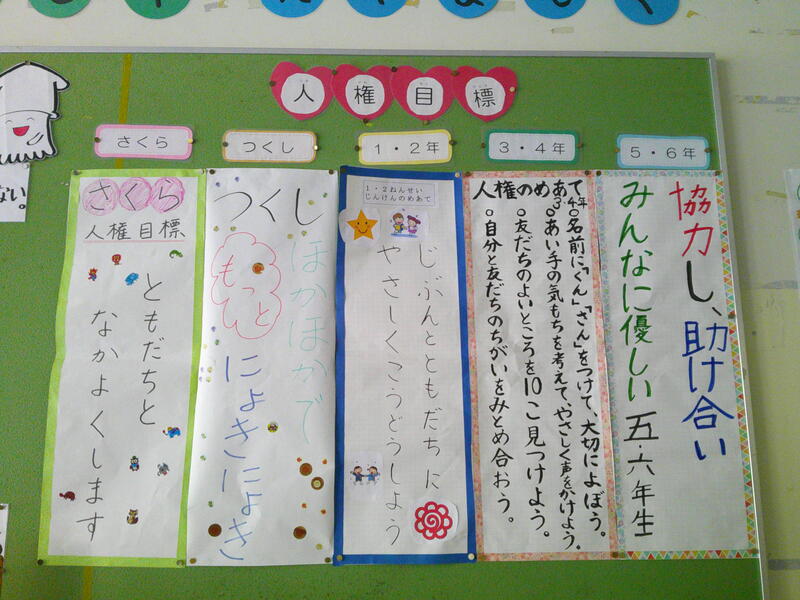 人権目標
さくら
つくし
1・2年
3・4年
5・6年
さくら
人権目標
ともだちと
なかよくします
つくし
ほかほかで
もっと
にょきにょき
1・2ねんせい
じんけんのめあて
じぶんとともだちに
やさしくこうどうしよう
人権のめあて
3・4年
○名前に「くん」「さん」をつけて、大切によぼう。
○あい手の気もちを考えて、やさしく声をかけよう。
○友だちのよいところを10こ見つけよう。
○自分と友だちのちがいをみとめ合おう。
協力し、助け合い
みんなに優しい五・六年生
ない。